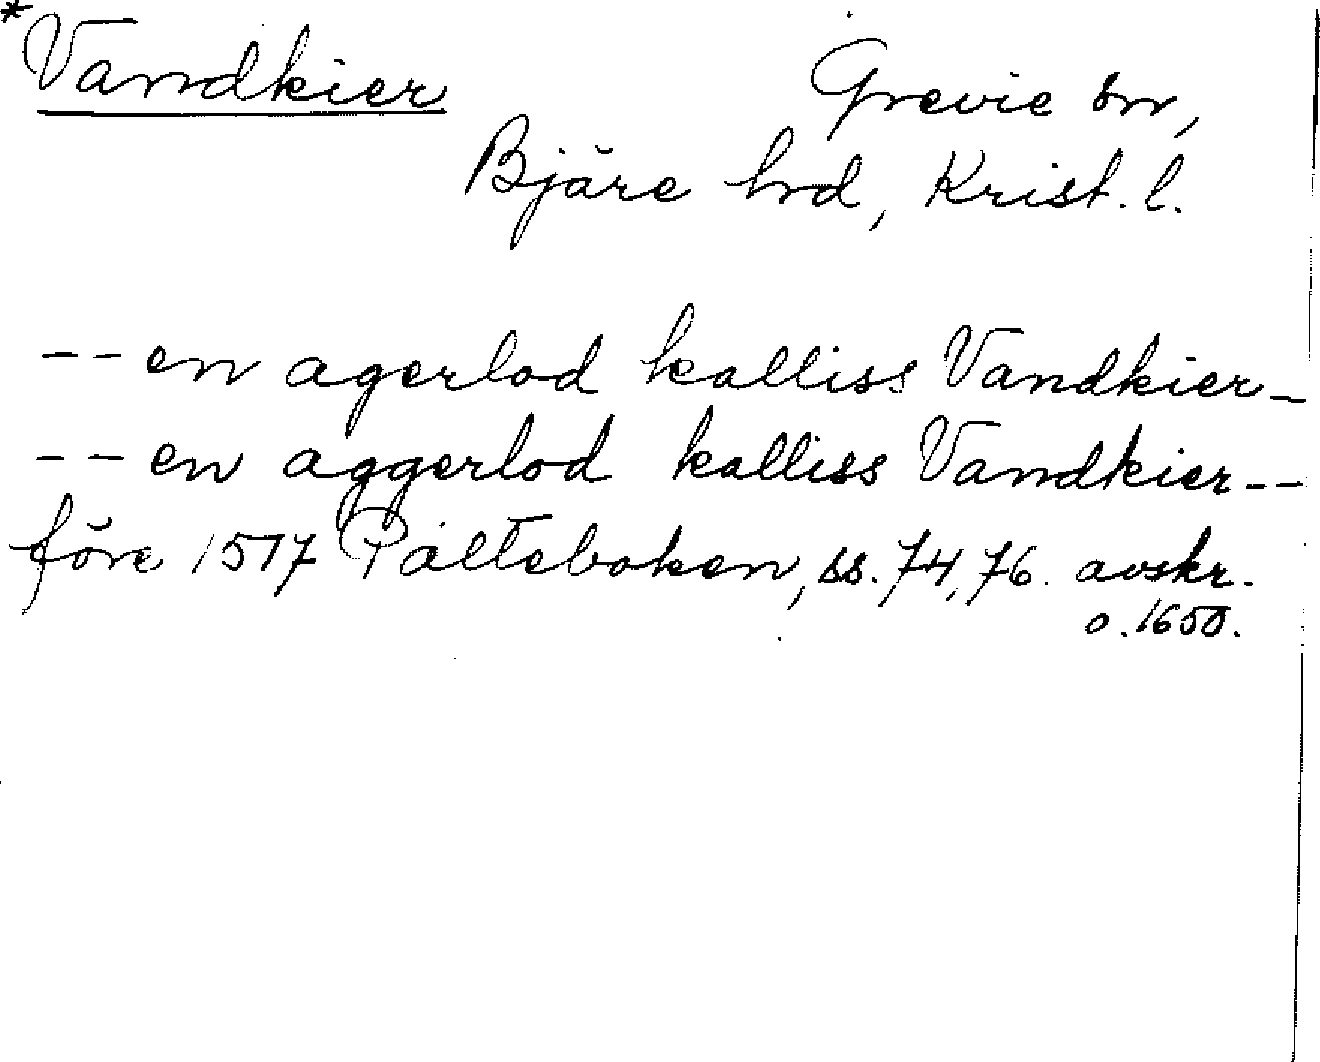 *Vandkier
Grevie sn,
Bjäre hrd, Krist. l.
-- en agerlod kalliss Vandkier -
-- en aggerlod kalliss Vandkier --
före 1517 Pålteboken, ss. 74, 76. avskr.
o. 1650.